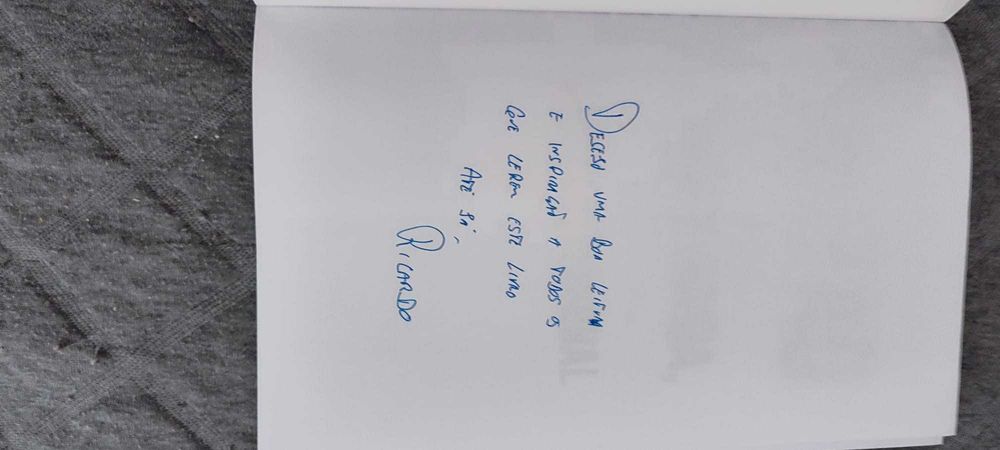 DESEJO UMA BOA LEITURA
E INSPIRAÇÃO A TODOS OS
QUE LEREM ESTE LIVRO
ATÉ JÁ,
RICARDO